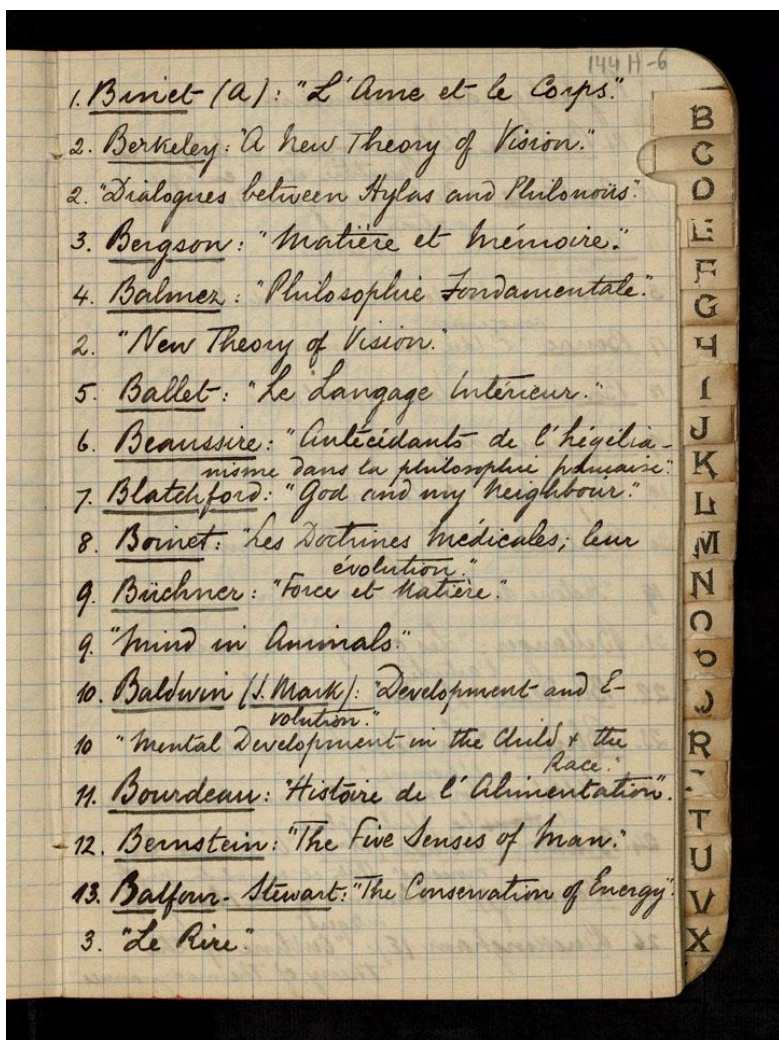 144 H-6
1. Binet (A): "L'Ame et le Corps."
2. Berkeley: "A New Theory of Vision."
2. "Dialogues between Hylas and Philonoüs".
3. Bergson: "Matière et Mémoire."
4. Balmez: "Philosophie Fondamentale".
2. "New Theory of Vision."
5. Ballet: "Le Langage Intérieur."
6. Beaussire: "Antécédants de l'hégélia-
nisme dans la philosophie française".
7. Blatchford: "God and my Neighbour".
8. Boinet: "Les Doctrines Médicales; leur
évolution."
9. Büchner: "Force et Matière".
9. "Mind in Animals."
10. Baldwin (J. Mark): "Development and E-
volution."
10 "Mental Development in the Child & the
Race."
11. Bourdeau: "Histoire de l'Alimentation".
12. Bernstein: "The Five Senses of Man."
13. Balfour-Stewart: "The Conservation of Energy".
3. "Le Rire".
B
C
D
E
F
G
H
I
J
K
L
M
N
O
R
T
U
V
X